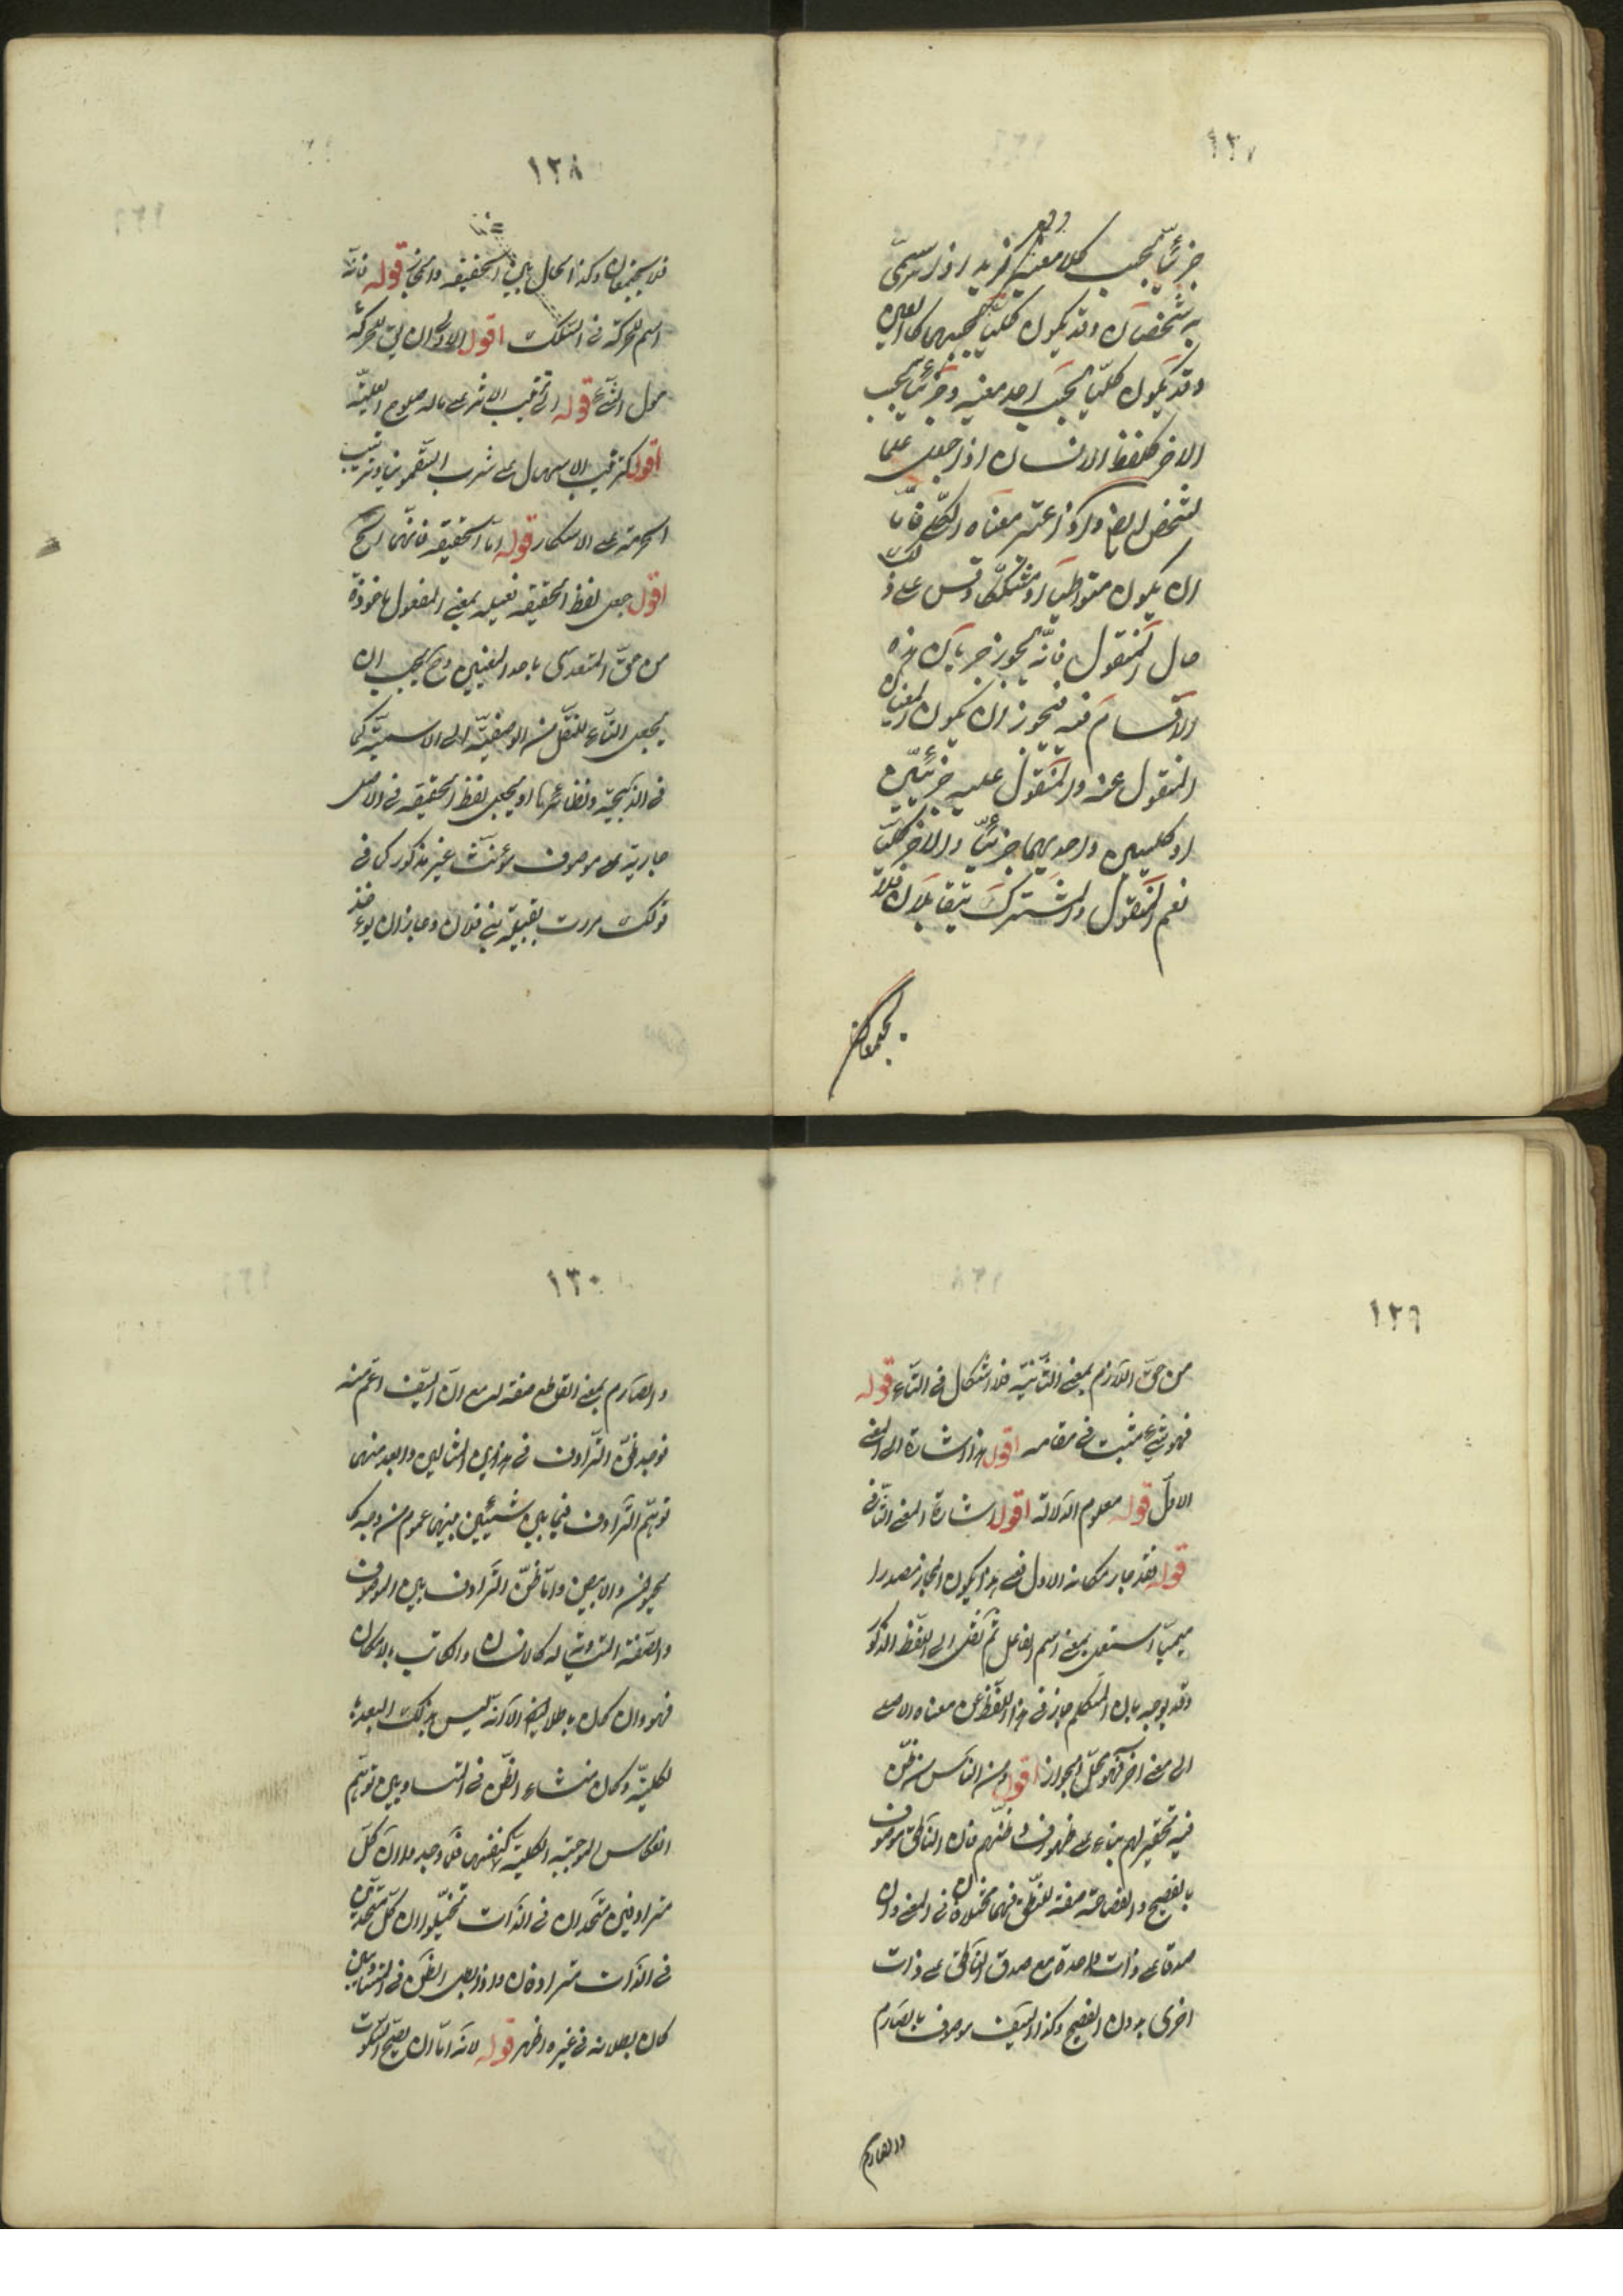 ١٢٧
جزئيّاً بحسب كلا معنييه كزيد اذا سمّى
به شخصان وقد يكون كليّا بحسبهما كالعين
وقد يكون كليّاً بحسب احد معنييه وجزئيّاً بحسب
الاخر كلفظ الانسان اذا جعل علما
لشخص ايضا واذا اعتبر معناه الكلّى فامّا
ان يكون متواطيا او مشكّكا وقس على ذلك
حال المنقول فانّه يجوز جريان هذه
الاقسام فيه فيجوز ان يكون المعنيان
المنقول عنه والمنقول عليه جزئيّين
او كليّين واحديهما جزئيّا والاخر كليّا
نعم المنقول والمشترك يتقابلان فلا
يجتمعان
١٢٨
فلا يجتمعان وكذا الحال بين الحقيقه والمجاز قوله فانّه
اسم للحركة فى السكك اقول الاولى ان يق للحركة
حول الشئ قوله اى ترتيب الاثر على ماله صلوح العليّة
اقول كترتيب الاسهال على شرب السّقمونيا وترتيب
الحرمة على الاسكار قوله امّا الحقيقه فانّها الخ
اقول جعل لفظ الحقيقه فعيله بمعنى المفعول ماخوذة
من حقّ المتعدى باحد المعنيين وح يجب ان
يجعل التاء للنقل من الوصفيّة الى الاسميّة كما
فى الذّبيحة ونظائرها او يجعل لفظ الحقيقه فى الاصل
جارية على موصوف مؤنّث غير مذكور كما فى
قولك مررت بقبيلة بنى فلان وجاز ان يوخذ
١٢٩
من حقّ اللازم بمعنى الثابتة فلا اشكال فى التاء قوله
فهو شئ مثبت فى مقامه اقول هذا اشارة الى المعنى
الاول قوله معلوم الدلالة اقول اشارة الى المعنى الثانى
قوله فقد جاز مكانه الاول فعلى هذا يكون المجاز مصدرا
ميميّا استعمل بمعنى اسم الفاعل ثم نقل الى اللفظ المذكور
وقد يوجه بان المتكلم جاز فى هذا اللفظ عن معناه الاصلى
الى معنى اخر فهو محل الجواز اقول ومن الناس من ظنّ
فيه تحقير لهم بناء على ظهور فساد ظنّهم فان الناطق موصوف
بالفصيح والفصاحة صفة للنّطق فهما مختلفان فى المعنى وان
صدقا على ذات واحدة مع صدق الناطق على ذات
اخرى بدون الفصيح وكذا السّيف موصوف بالصّارم
والصارم
١٣٠
والصّارم بمعنى القاطع صفة له مع انّ السّيف اعمّ منه
فوجد ظنّ التّرادف فى هذين المثالين وابعد منهما
توهّم التّرادف فيما بين شيئين بينهما عموم من وجه كا
لحيوان والابيض وامّا ظنّ التّرادف بين الموصوف
والصّفة المتساوية له كالانسان والكاتب بالامكان
فهو وان كان باطلا ايضا الّا انّه ليس بذلك البعد با
لكليّة وكان منشاء الظّن فى المتساويين توهّم
انعكاس الموجبة الكلية كنفسها فلمّا وجدوا انّ كلّ
مترادفين متحدان فى الذات تخيّلوا ان كلّ متّحدين
فى الذّات مترادفان واذا بطل الظّن فى المتساويين
كان بطلانه فى غيره اظهر قوله لانّه امّا ان يصحّ السّكوت